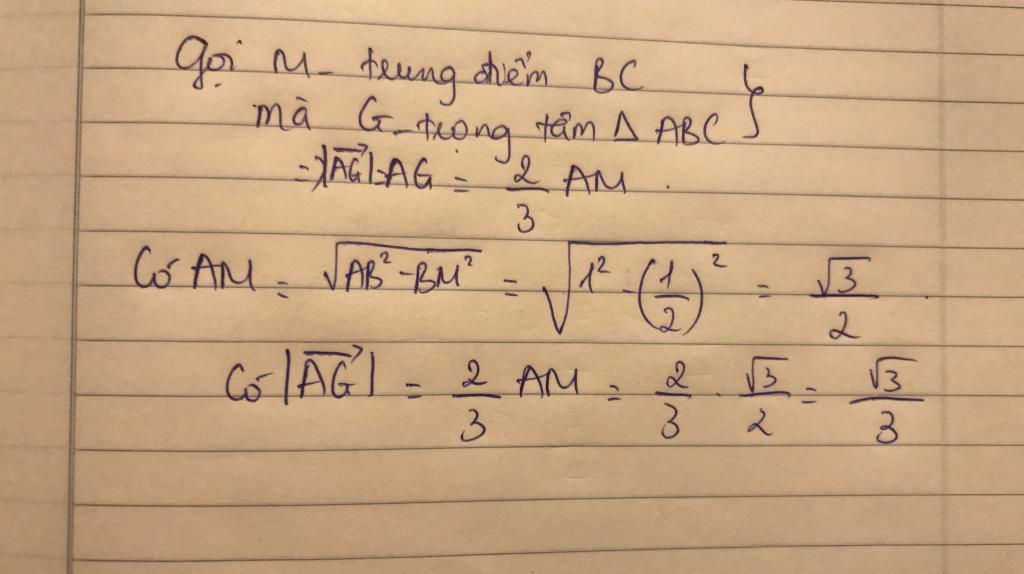 Gọi M - trung điểm BC
mà G - trọng tâm Δ ABC }
=> |\overrightarrow{AG}| = AG = \frac{2}{3} AM .
Có AM = \sqrt{AB^2 - BM^2} = \sqrt{1^2 - (\frac{1}{2})^2} = \frac{\sqrt{3}}{2} .
Có |\overrightarrow{AG}| = \frac{2}{3} AM = \frac{2}{3} . \frac{\sqrt{3}}{2} = \frac{\sqrt{3}}{3}